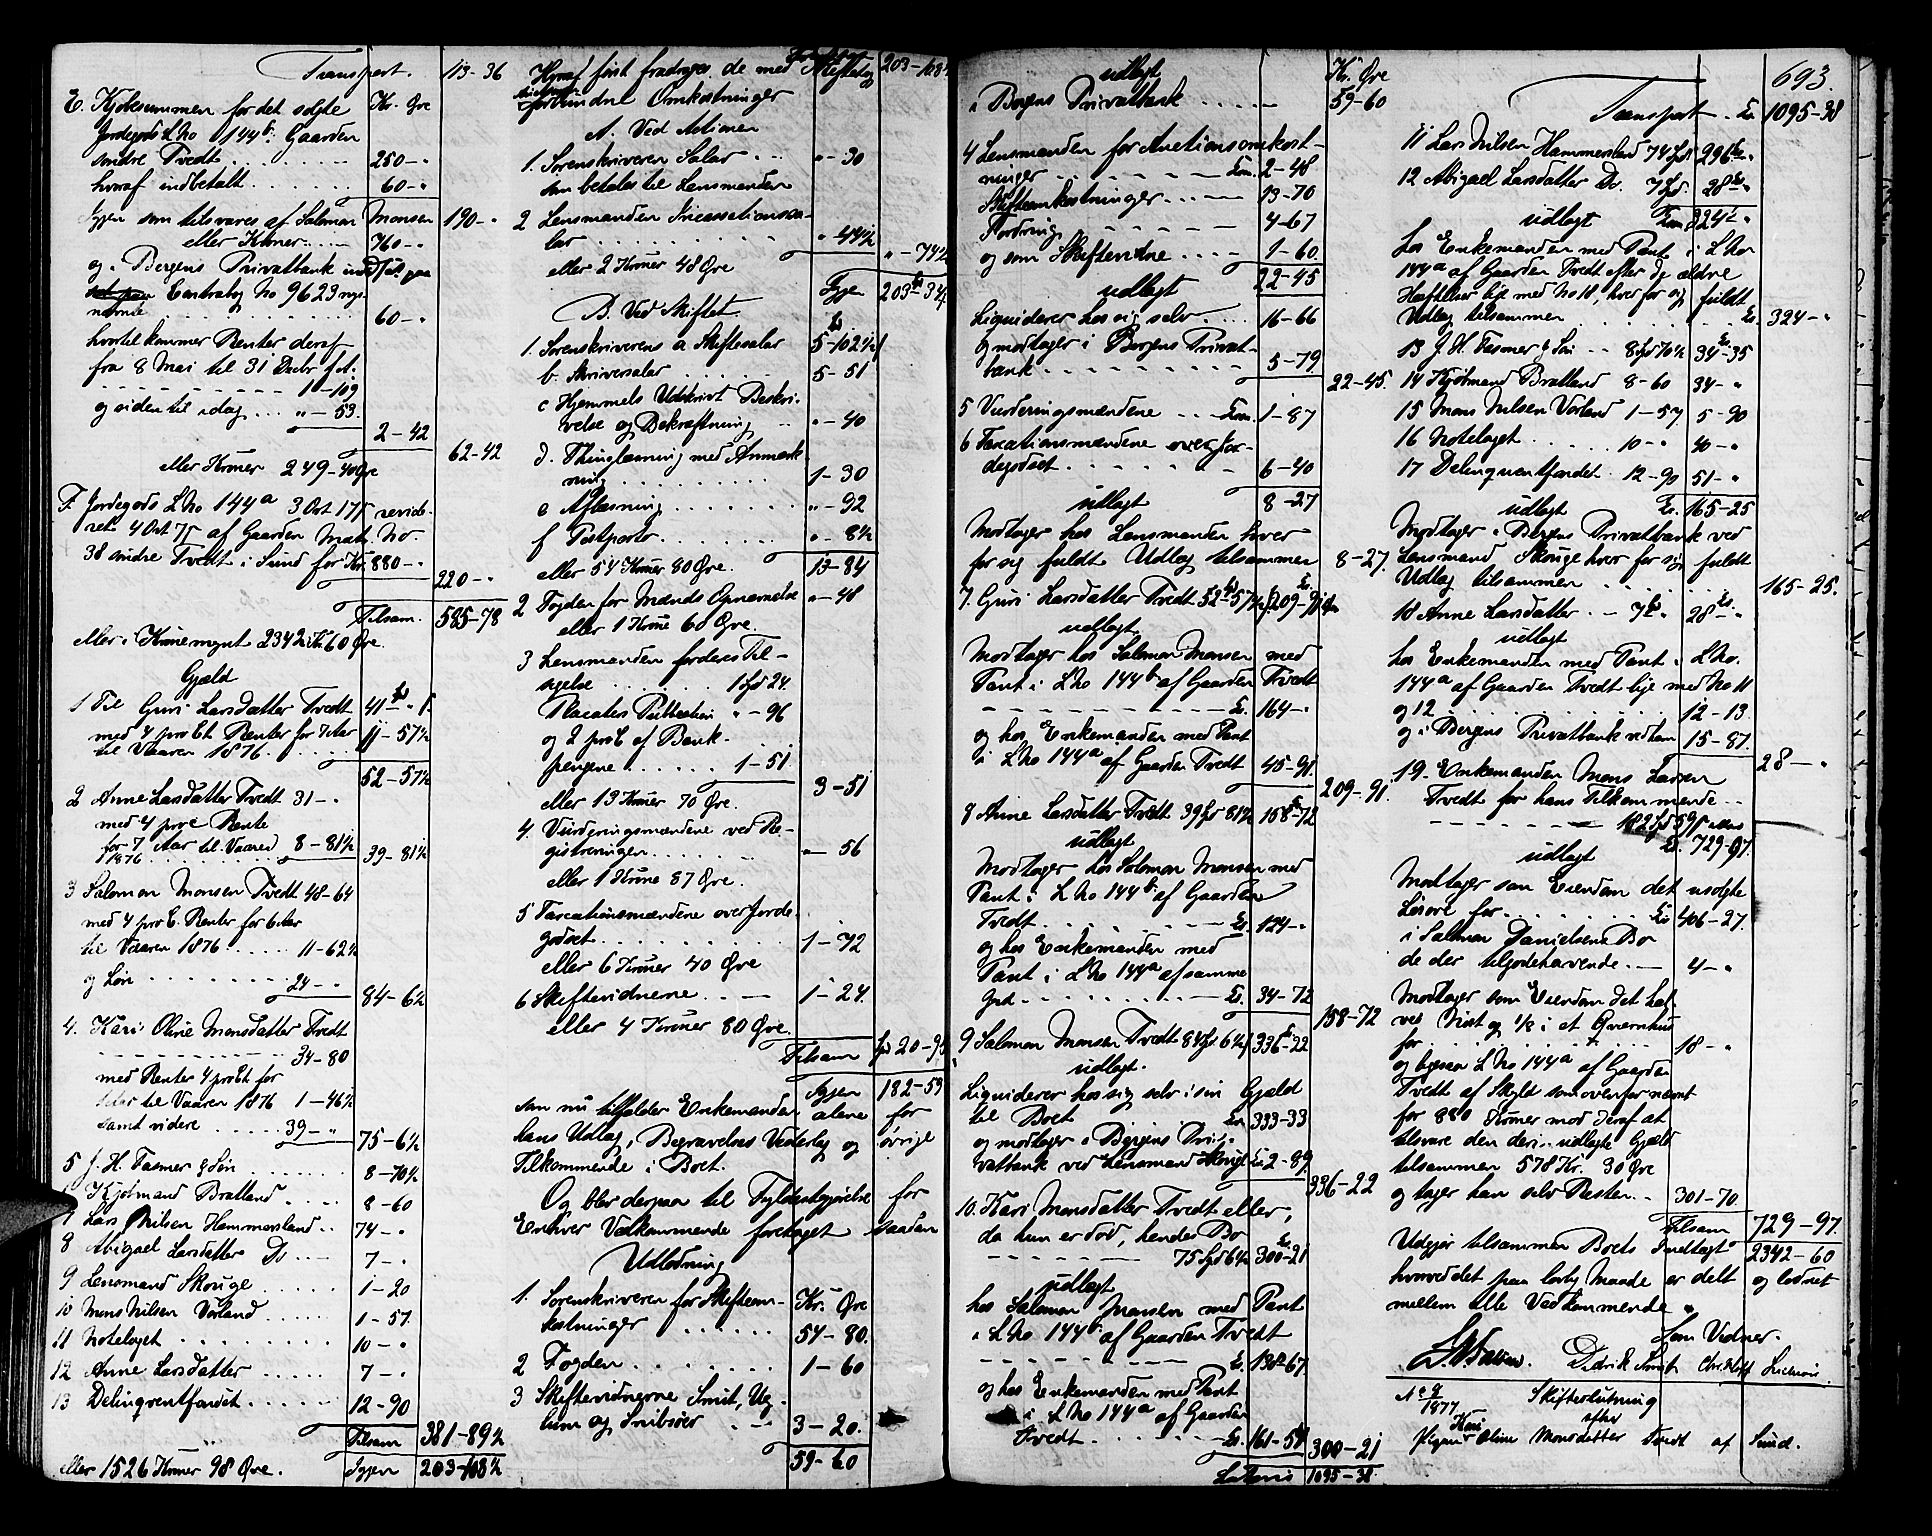 Transport. 113-36
E. Kjøbesummen for det solgte Kr. Øre
Jordegods LNo 144b. Gaarden
søndre Tvedt 250-"
hvoraf indbetalt 60-"
Igjen som tilsvares af Salomon Monsen 190-"
eller Kroner 760-"
og i Bergens Privatbank indsat paa
Contrabog No 9623 nys-
nævnte 60-"
hvortil kommer Renter deraf
fra 8 Mai til 31 Decbr f.A.
1-109
og siden til idag "-53
2-42
62-42
eller Kroner 249-40 Øre
F. Jordegods LNo 144a 3 Ort 17 revide-
ret 4 Ort 7 af Gaarden Mat. No.
38 søndre Tvedt i Sund for Kr. 880-"
220-"
Tilsam. 585-78
eller i Kronemynt 2342 Kr. 60 Øre.
Gjæld
1 Til Guri Larsdatter Tvedt 41-"
med 4 proCt Renter for 7 Aar
til Vaaren 1876 11-57½
52-57½
2 Anne Larsdatter Tvedt 31-"
med 4 proC Rente
for 7 Aar til Vaaren
1876 8-81½ 39-81½
3 Salomon Monsen Tvedt 48-64
med 4 proC. Renter for 6 Aar
til Vaaren 1876 11-62½
og Løn 24-"
84-6½
4. Kari Oline Monsdatter Tvedt
34-80
med Renter 4 proCt for
Aar til Vaaren 1876 1-46½
samt videre 39-"
75-6½
5 J. H. Fasmer & Søn 8-70½
6 Kjøbmand Bratland 8-60
7 Lars Nilsen Hammersland 74-"
8 Abigael Larsdatter Do 7-"
9 Lensmand Skouge 1-20
10 Mons Nilsen Vorland 1-57
11 Notelaget 10-"
12 Anne Larsdatter 7-"
13 Delinqventfondet 12-90
Tilsam 381-89½
eller 1526 Kroner 98 Øre. Igjen 203-108½
Hvoraf først fradrages de med Skiftet 203-108½
forbundne Omkostninger
A. Ved Auctionen
1. Sorenskriveren Salær "-30
som betales til Lensmanden
2 Lensmanden Incassationssa-
lær "-44½
"-74½
eller 2 Kroner 48 Øre
Igjen 203-34
B. Ved Skiftet
1. Sorenskriverens a Skiftesalær 5-102½
b. Skriversalær 5-51
c Hjemmels Udskrivt Beskri-
velse og Bekræftning "-40
d. Thinglæsning med Anmærk
ning 1-30
e Aflæsning "-92
f Postporto "-8½
eller 54 Kroner 80 Øre. 13-84
2 Fogden for Mænds Opnævnelse "-48
eller 1 Krone 60 Øre.
3 Lensmanden forderes Til-
sigelse 1 Spd 24.
Placaters Publication "-96
og 2 proC af Bank-
pengene 1-51
3-51
eller 13 Kroner 70 Øre.
4. Vurderingsmændene ved Re-
gistreringen "-56
eller 1 Krone 87 Øre.
5 Taxationsmændene over Jorde-
godset 1-72
eller 6 Kroner 40 Øre
6 Skiftevidnerne 1-24
eller 4 Kroner 80 Øre.
Tilsam 20-95
Igjen 182-59
som nu tilfalder Enkemanden alene for
hans Udlæg, Begravelses Vederlag og øvrige
Tilkommende i Boet.
Og blev derpaa til Fyldestgjørelse for
Enhver Vedkommende foretaget saadan
Udlodning
1. Sorenskriveren for Skifteom- Kr. Øre
kostninger 54-80.
2 Fogden 1-60
3 Skiftevidnerne Smit,
og Snibsøer 3-20.
59-60
udlagt Kr. Øre
i Bergens Privatbank 59-60
4 Lensmanden for Auctionsomkost-
ninger Kr. 2-48
Skifteomkostninger 13-70
Fordring 4-67
og som Skiftevidne 1-60.
udlagt 22-45
Liquiderer hos sig selv 16-66
og modtager i Bergens Privat-
bank 5-79
22-45.
5 Vurderingsmændene Kr. 1-87
6 Taxationsmændene over Jor-
degodset 6-40
udlagt 8-27
Modtager hos Lensmanden hver
for sig fuldt Udlæg tilsammen 8-27
7. Guri Larsdatter Tvedt 52-57½ 209-91
udlagt
Modtager hos Salomon Monsen med
Pant i LNo 144b af Gaarden Tvedt
Kr. 164-"
og hos Enkemanden med Pant
i LNo 144a af Gaarden Tvedt 45-91
209-91.
8 Anne Larsdatter Tvedt 39 Spd 81½ 158-72
udlagt
Modtager hos Salomon Monsen med
Pant i LNo 144b. af Gaarden
Tvedt Kr. 124-"
og hos Enkemanden med
Pant i LNo 144a af samme
Grd Kr. 34-72
158-72
9 Salomon Monsen Tvedt 84 Spd 6½ 336-22
udlagt.
Liquiderer hos sig selv i sin Gjæld
til Boet Kr 333-33
og modtager i Bergens Pri-
vatbank ved Lensmand Skouge 2-89
336-22
10. Kari Monsdatter Tvedt eller,
da hun er død, hendes Bo
75 Spd 6½ 300-21
udlagt
hos Salomon Monsen med Pant
i LNo 144b. af Gaarden Tvedt
Kr. 138-67.
og hos Enkemanden med Pant
i LNo 144a af Gaarden
Tvedt Kr. 161-54
300-21
Lateris 1095-38
693.
Transport Kr 1095-38
11 Lars Nilsen Hammersland 74 Spd 296-"
12 Abigael Larsdatter Do. 7 Spd. 28-"
udlagt Kr 324-"
hos Enkemanden med Pant i LNo
144a af Gaarden Tvedt efter de ældre
Hæftelser lige med No 18, hver for sig fuldt
Udlæg tilsammen Kr. 324-"
13 J. H. Fasmer & Søn 8 Spd 70½ 34-35
14 Kjøbmand Bratland 8-60 34-"
15 Mons Nilsen Vorland 1-57 5-90
16 Notelaget 10-" 40-"
17 Delinquentfondet 12-90 51-"
udlagt Kr. 165-25
Modtager i Bergens Privatbank ved
Lensmand Skouge hver for sig fuldt
Udlæg tilsammen 165-25.
18 Anne Larsdatter 7-" 28-"
udlagt
hos Enkemanden med Pant i LNo.
144a af Gaarden Tvedt lige med No 11
og 12 12-13
og i Bergens Privatbank ved ham 15-87.
28-"
19. Enkemanden Mons Larsen
Tvedt for hans Tilkommende
182 Spd 59 eller
udlagt Kr. 729-97.
Modtager som Eiendom det usolgte
Løsøre for Kr 406-27.
i Salmon Danielsens Bo
de der tilgodehavende 4-"
Modtager som Eiendom det hal-
ve Nøst og ⅛ i et Qvernhus
for 18-"
og bygsen LNo 144a af Gaarden
Tvedt af Skyld som ovenfor nævnt
for 880 Kroner mod deraf at
tilsvare den deri udlagte Gjæld
tilsammen 578 Kr. 30 Øre
og tager han selv Resten 301-70
Tilsam 729-97.
Udgjør tilsammen Boets Indtægt 2342-60
hvorved det paa lovlig Maade er delt og loddet
mellem alle Vedkommende
Som Vidner.
Didrik Smit
No 9/1877 Skifteslutning
efter
Pigen Kari Oline Monsdatter Tvedt af Sund.